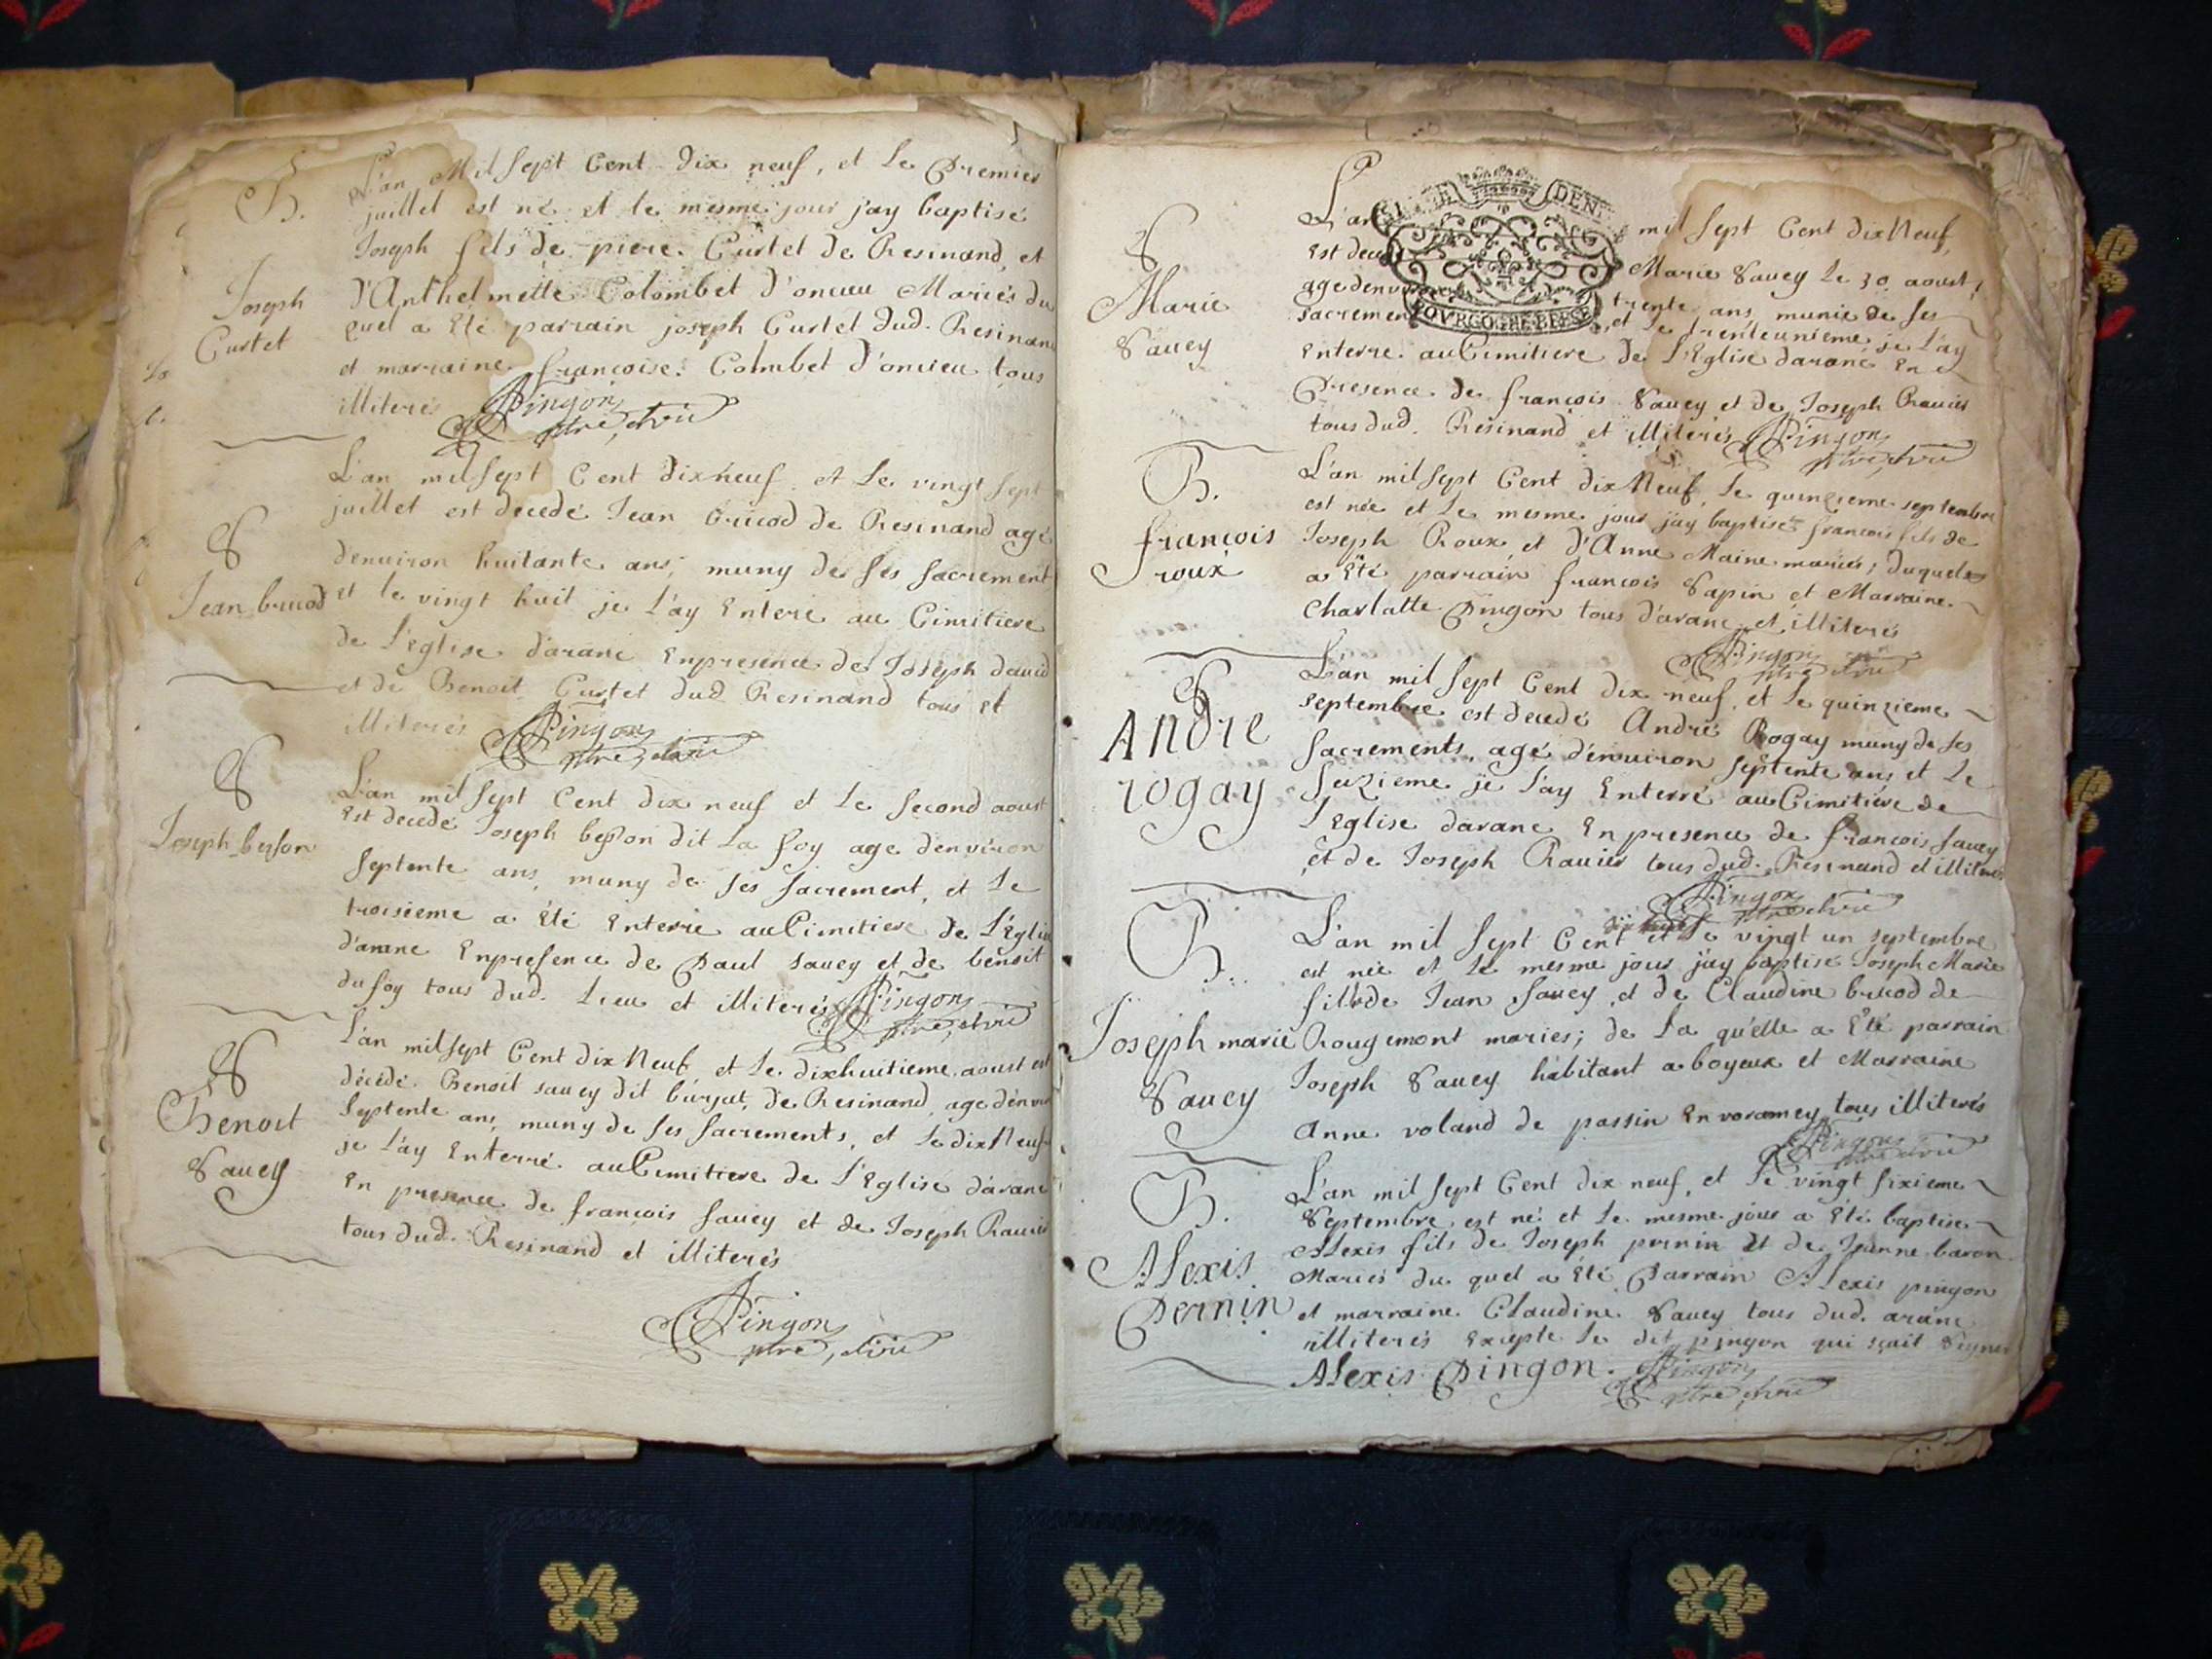 B.
Joseph
Curtet
L'an Mil sept Cent dix neuf, et Le Premier
juillet est né et le mesme jour j'ay baptisé
Joseph fils de piere Curtet de Resinand, et
d'Anthelmette Colombet d'oncieu Mariés du
quel a Eté parrain joseph Curtet dud. Resinand
et marraine francoise Colmbet d'oncieu tous
illiterés Pingon
ptre, vic
S
Jean brucod
L'an mil sept Cent dix neuf et Le vingt sept
juillet est decedé Jean brucod de Resinand agé
denuiron huitante ans, muny de ses sacrement
et le vingt huit je L'ay Enteré au Cimitiere
de L'eglise d'arane En presence de Joseph dauid
et de Benoit Curtet dud Resinand tous et
illiterés Pingon
ptre, vic
S
Joseph besson
L'an mil sept Cent dix neuf et Le second aoust
Est decedé Joseph besson dit La foy age denviron
septente ans, muny de ses sacrement, et Le
troisieme a Eté Enterré au Cimitiere de L'Eglise
d'arane En presence de Paul sauey et de benoit
dufoy tous dud. Lieu et illiterés Pingon
ptre, vic
S
Benoit
Sauey
L'an mil sept Cent dix Neuf et Le dixhuitieme aoust est
décédé Benoit sauey dit burjat, de Resinand, age dénuiron
septente ans, muny de ses sacrements, et Le dix Neuf
je L'ay Enterré au Cimitiere de L'Eglise d'arane
En presence de francois sauey et de Joseph Rauier
tous dud. Resinand et illiterés
Pingon
ptre, vic
S
Marie
Sauey
L'an mil sept Cent dix Neuf,
DEN
BOVRGOGNE BRESSE
Est decedé Marie Sauey Le 30 aoust,
age denviron trente ans munie de ses
sacrements, et Le trenteunieme je L'ay
Enterré au Cimitiere de L'Eglise darane En
Presence de françois Sauey et de Joseph Rauier
tous dud. Resinand et illiterés Pingon
ptre, vic
B.
françois
roux
L'an mil sept Cent dix Neuf, Le quinzieme septembre
est née et Le mesme jour j'ay baptisé francois fils de
Joseph Roux et d'Anne Maine mariés, duquel
a Eté parrain francois Sapin et Marraine
Charlatte Pingon tous d'arane et illiterés
Pingon
ptre vic
S
Andre
rogay
L'an mil sept Cent dix neuf, et Le quinzieme
septembre est decedé André Rogay muny de ses
sacrements, agé d'enuiron septente ans et Le
seizieme je L'ay Enterré au Cimitiere de
L'Eglise darane En presence de françois sauey
et de Joseph Rauier tous dud. Resinand et illiterés
Pingon
ptre vic
B.
Joseph marie
Sauey
dix neuf
L'an mil sept Cent et Le vingt un septembre
est née et Le mesme jour j'ay baptisé Joseph Marie
fille de Jean sauey, et de Claudine brucod de
Rougemont mariés; de La qu'elle a Eté parrain
Joseph Sauey habitant a boyeux et Marraine
Anne voland de passin En voromey tous illiterés
Pingon
ptre vic
B.
Alexis
Pernin
L'an mil sept Cent dix neuf, et Le vingt sixieme
Septembre est né et Le mesme jour a Eté baptisé
Alexis fils de Joseph pernin et de Jeanne baron
Mariés du quel a Eté Parrain Alexis pingon
et marraine Claudine Sauey tous dud. arane
illiterés Excepté Le dit pingon qui sçait Signer
Alexis Pingon. Pingon
ptre, vic